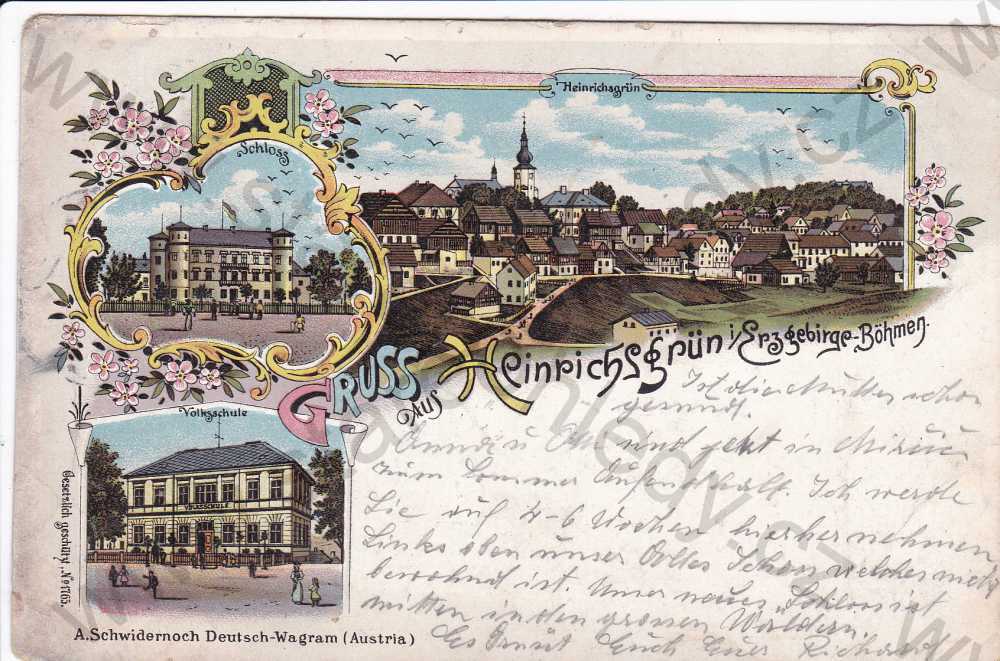 Heinrichsgrün
Schloss
Gruss aus Heinrichsgrün i/Erzgebirge-Böhmen.
Volksschule
VOLKSSCHULE
Gesetzlich geschützt, No 1765.
A. Schwidernoch Deutsch-Wagram (Austria)
Ist die Mutter schon
gesund.
sind jetzt in
zum Sommer Aufenthalt. Ich werde
Sie auf 4-6 Wochen hierher nehmen
Links oben unser altes welches nicht
bewohnt ist. Unser neues Schloss ist
mitten in den grossen Wäldern.
Es grüsst Euch Euer Richard